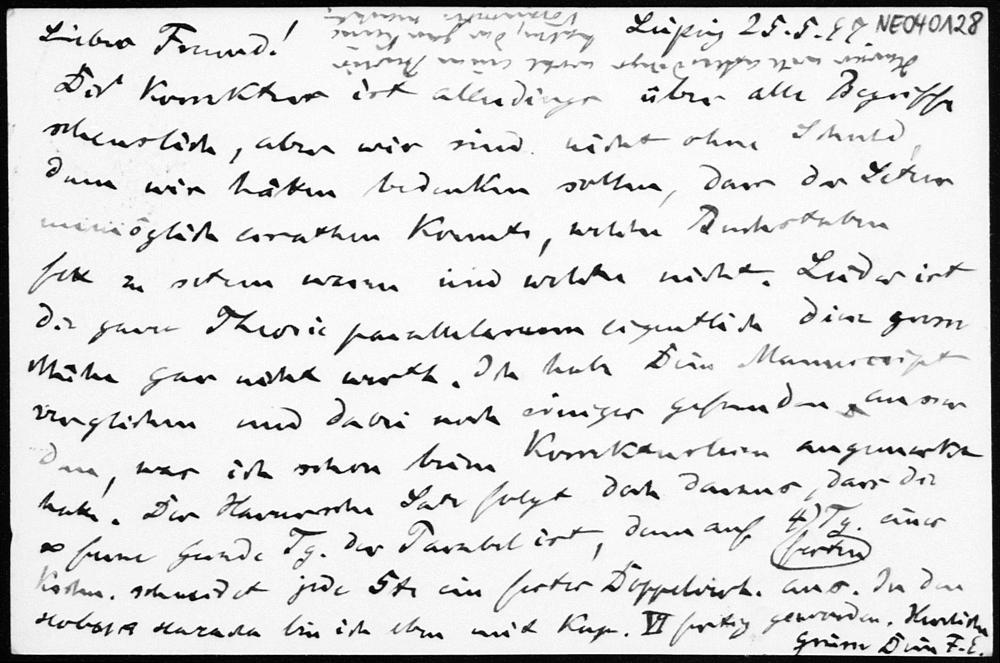 Lieber Freund! Leipzig 25.5.97 NE040128
Die Korrektur ist allerdings über alle Begriffe
scheusslich, aber wir sind nicht ohne Schuld,
denn wir hätten bedenken sollen, dass der Setzer
unmöglich errathen konnte, welche Buchstaben
fett zu setzen waren und welche nicht. Leider ist
die ganze Theoria parallelarum eigentlich diese grosse
Mühe gar nicht werth. Ich habe Dein Manuscript
verglichen und dabei noch einiges gefunden ausser
dem, was ich schon beim Korrekturlesen angemerkt
hatte. Der Satz folgt doch daraus, dass die
∞ ferne Gerade Tg. der Parabel ist, denn auf 4) Tg. eines
festen
schneidet jede 5te ein festes Doppelverh. aus. In den
новыя начала bin ich eben mit Kap. VI fertig geworden. Herzliche
Grüsse Dein F.E.